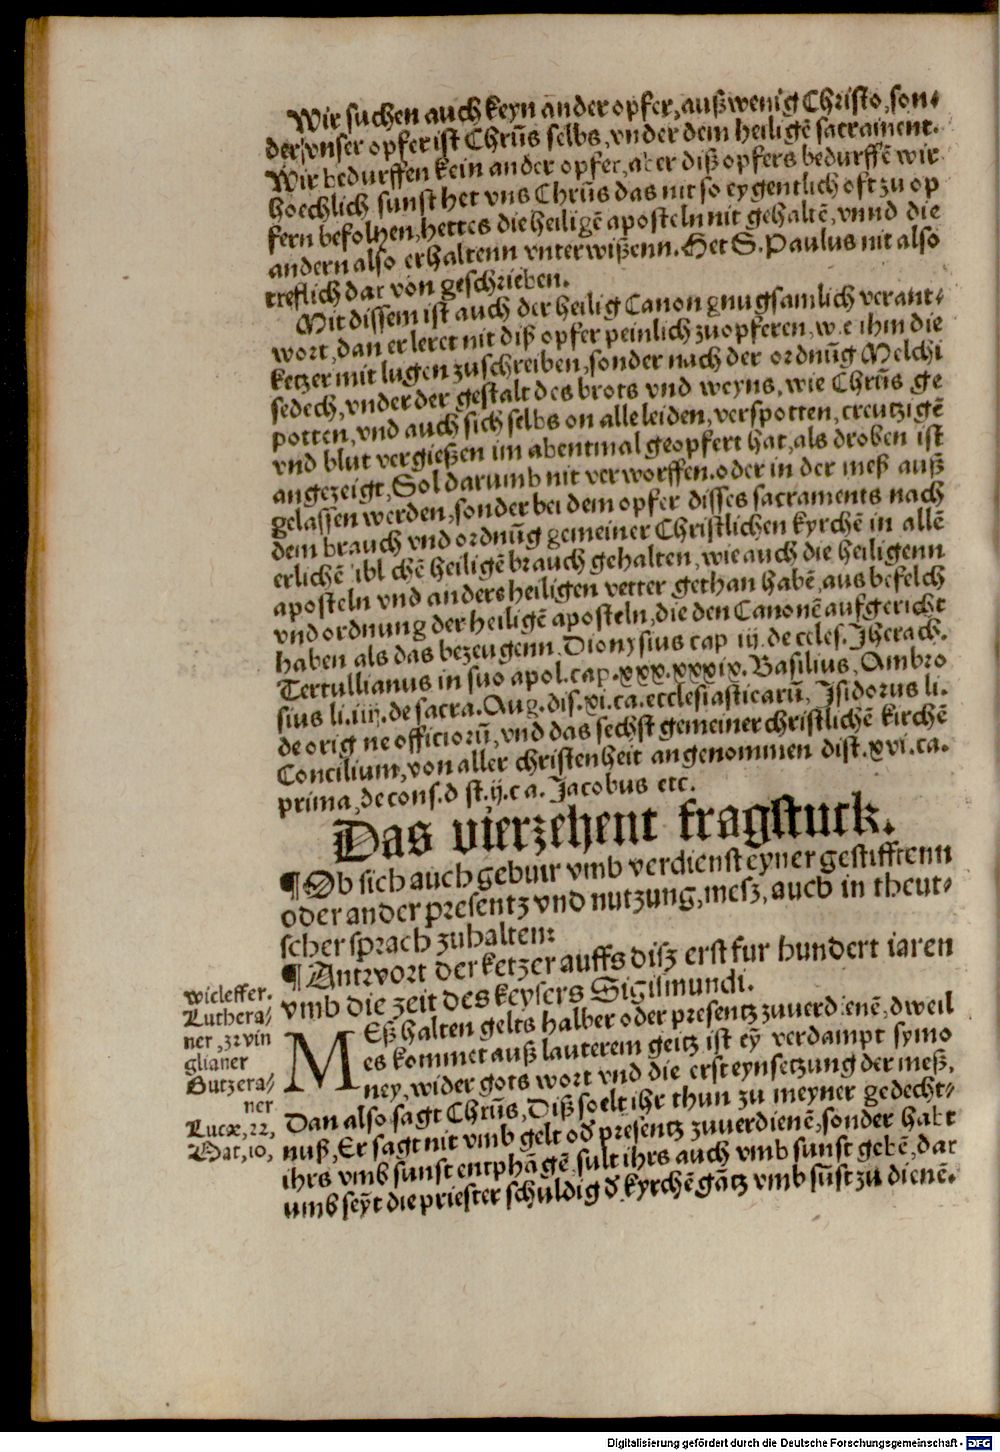 Wir suchen auch keyn ander opfer, außwenig Christo, son-
der vnser opfer ist Chrũs selbs, vnder dem heiligẽ sacrament.
Wir bedurffen kein ander opfer, aber diß opfers bedurffẽ wir
hoechlich sunst het vns Chrũs das nit so eygentlich oft zu op
fern befolhen, hettes die heiligẽ aposteln nit gehaltẽ, vnnd die
andern also erhaltenn vnterwißenn. Het S. Paulus nit also
treflich dar von geschrieben.
Mit dissem ist auch der heilig Canon gnugsamlich verant-
wort, dan er leret nit diß opfer peinlich zuopferen, wie ihm die
ketzer mit lugen zuschreiben, sonder nach der ordnũg Melchi
sedech, vnder der gestalt des brots vnd weyns, wie Chrũs ge
potten, vnd auch sich selbs on alle leiden, verspotten, creutzigẽ
vnd blut vergießen im abentmal geopfert hat, als droben ist
angezeigt, Sol darumb nit verworffen. oder in der meß auß
gelassen werden, sonder bei dem opfer disses sacraments nach
dem brauch vnd ordnũg gemeiner Christlichen kyrchẽ in allẽ
erlichẽ ibl chẽ heiligẽ brauch gehalten, wie auch die heiligenn
aposteln vnd anders heiligen vetter gethan habẽ, aus befelch
vnd ordnung der heiligẽ aposteln, die den Canonẽ aufgericht
haben als das bezeugenn. Dionysius cap iij. de ecles. Jherach.
Tertullianus in suo apol. cap. xxx. xxxix. Basilius, Ambro
sius li. iiij. de sacra. Aug. dis. xi. ca. ecclesiasticarũ, Isidorus li.
de orig ne officiorũ, vnd das sechst gemeiner christlichẽ kirchẽ
Concilium, von aller christenheit angenommen dist. xvi. ca.
prima, de cons. d st. ij. c a. Jacobus etc.
Das vierzehent fragstuck.
¶ Ob sich auch gebuir vmb verdienst eyner gestifftenn
oder ander presentz vnd nutzung, mesz, auch in theut-
scher sprach zuhalten:
¶ Antwort der ketzer auffs disz erst fur hundert iaren
vmb die zeit des keysers Sigismundi.
wicleffer.
Luthera-
ner, zwin
glianer
Butzera-
ner
Lucæ, 22,
Mat, 10,
MEß halten gelts halber oder presentz zuuerdienẽ, dweil
es kommet auß lauterem geitz ist eỹ verdampt symo
ney, wider gots wort vnd die erst eynsetzung der meß,
Dan also sagt Chrũs, Diß soelt ihr thun zu meyner gedecht-
nuß, Er sagt nit vmb gelt oď presentz zuuerdienẽ, sonder habt
ihrs vmb sunst entphãgẽ, sult ihrs auch vmb sunst gebẽ, dar
umb seỹt die priester schuldig ď kyrchẽ gãtz vmb sũst zu dienẽ.
Digitalisierung gefördert durch die Deutsche Forschungsgemeinschaft - DFG